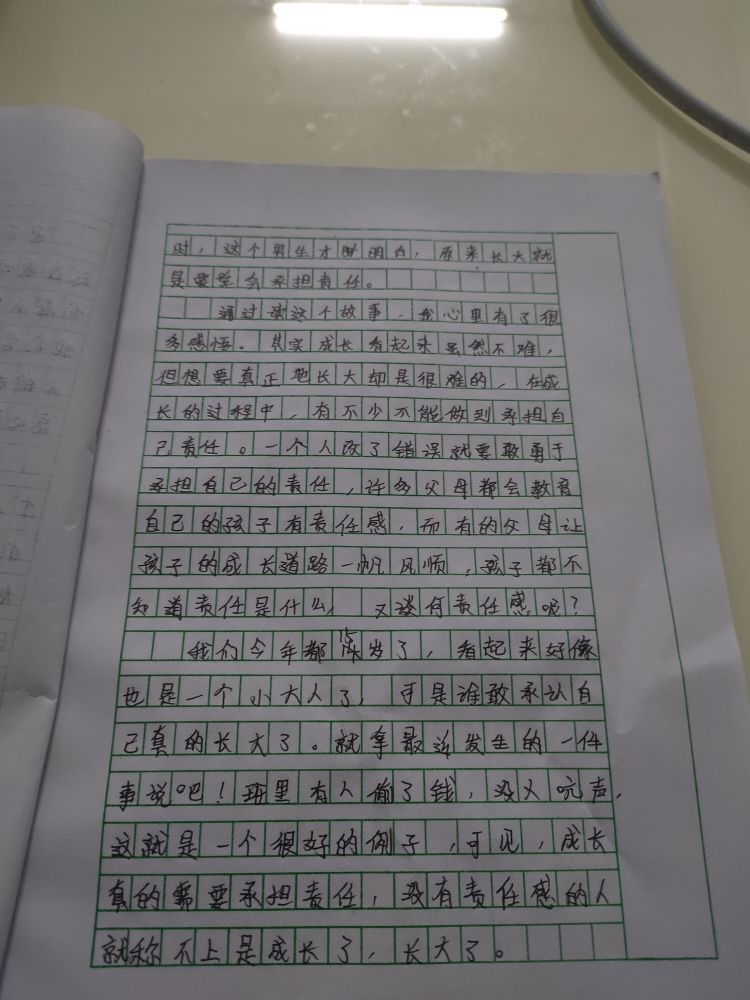 时，这个男生才明白，原来长大就
是要学会承担责任。
通过读这个故事，我心里有了很
多感悟。其实成长看起来虽然不难，
但想要真正地长大却是很难的，在成
长的过程中，有不少不能做到承担自
己责任。一个人改了错误就要敢勇于
承担自己的责任，许多父母都会教育
自己的孩子有责任感，而有的父母让
孩子的成长道路一帆风顺，孩子都不
知道责任是什么，又谈何责任感呢？
我们今年都15岁了，看起来好像
也是一个小大人了，可是谁敢承认自
己真的长大了。就拿最近发生的一件
事说吧！班里有人偷了钱，没人吭声，
这就是一个很好的例子，可见，成长
真的需要承担责任，没有责任感的人
就称不上是成长了，长大了。